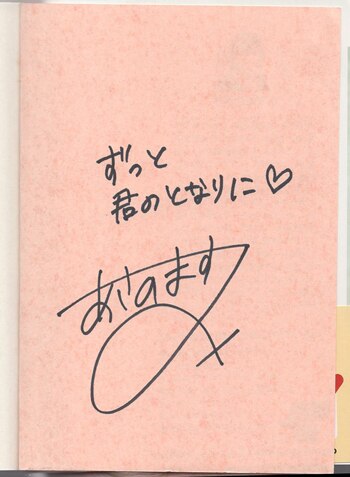 ずっと
君のとなりに♡
あさのます